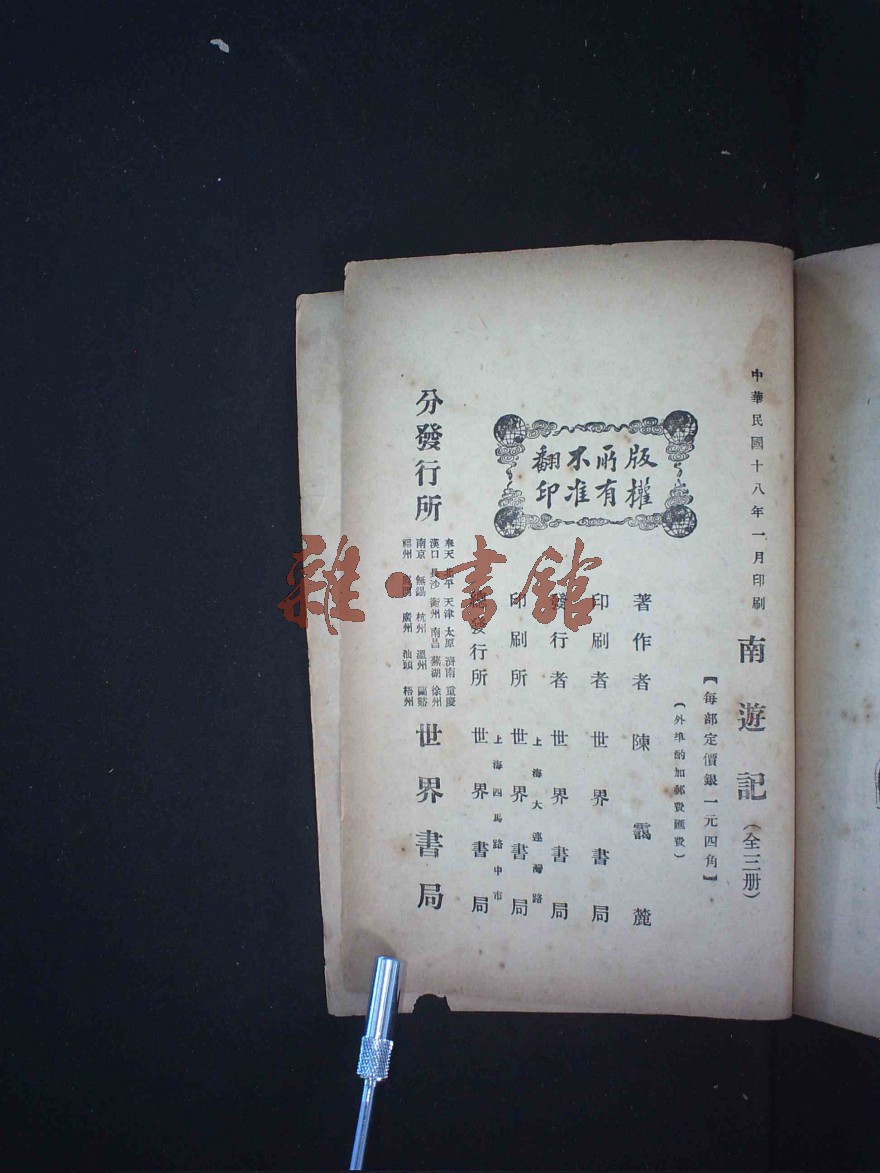 中華民國十八年一月印刷
南遊記（全三册）
【每部定價銀一元四角】
（外埠酌加郵費匯費）
版權所有
不准翻印
著作者 陳靄麓
印刷者 世界書局
發行者 世界書局
上海大連灣路
印刷所 世界書局
上海四馬路中市
總發行所 世界書局
分發行所
奉天 北平 天津 太原 濟南 重慶
漢口 長沙 衡州 南昌 蕪湖 徐州
南京 無錫 杭州 溫州 蘭谿
福州 廣州 汕頭 梧州
世界書局
雜·書館